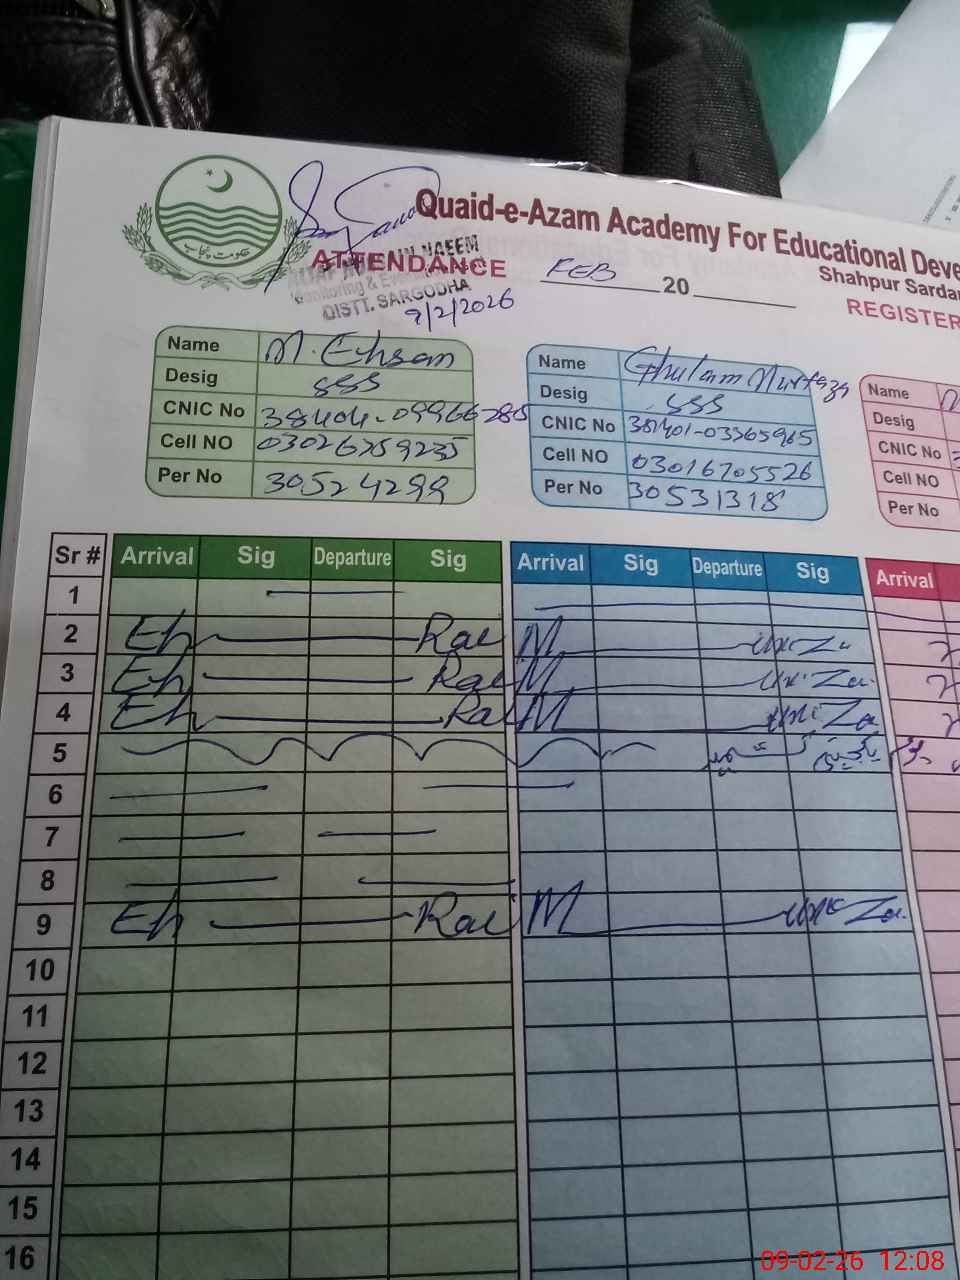 حکومت پنجاب
Quaid-e-Azam Academy For Educational Deve
Shahpur Sardar
ATTENDANCE FEB 20
REGISTER
NAEEM
Monitoring &
DISTT. SARGODHA
9/2/2026
Name M. Ehsan
Desig SSS
CNIC No
Cell NO 03026759235
Per No 30524299
Name Ghulam Murtaza
Desig SSS
CNIC No 38401-03365965
Cell NO 03016705526
Per No 30531318
Name
Desig
CNIC No
Cell NO
Per No
Sr # Arrival Sig Departure Sig Arrival Sig Departure Sig Arrival
1
2 Eh Rae M
3 Eh Rae M
4 Eh Rae M
5
6
7
8
9 Eh Rae M
10
11
12
13
14
15
16
09-02-26 12:08